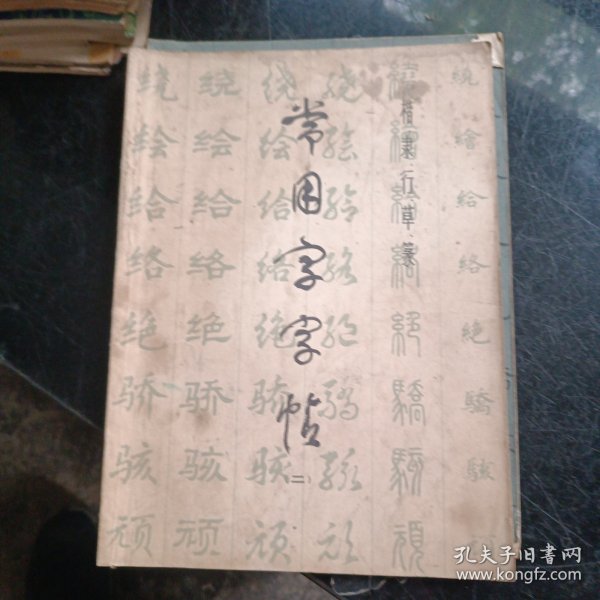 楷隶行草篆
常用字字帖
(二)
繞繪给络絕驕骇
绕绘给络绝骄骇颃
绕绘给络绝骄骇顽
绕绘给络绝骄骇顽
绕绘给络绝骄骇顽
孔夫子旧书网
www.kongfz.com